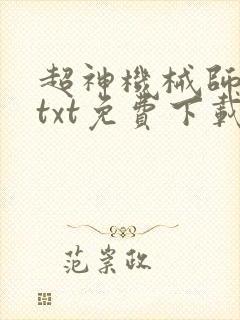 超神機械師
txt免費下載
范崇政